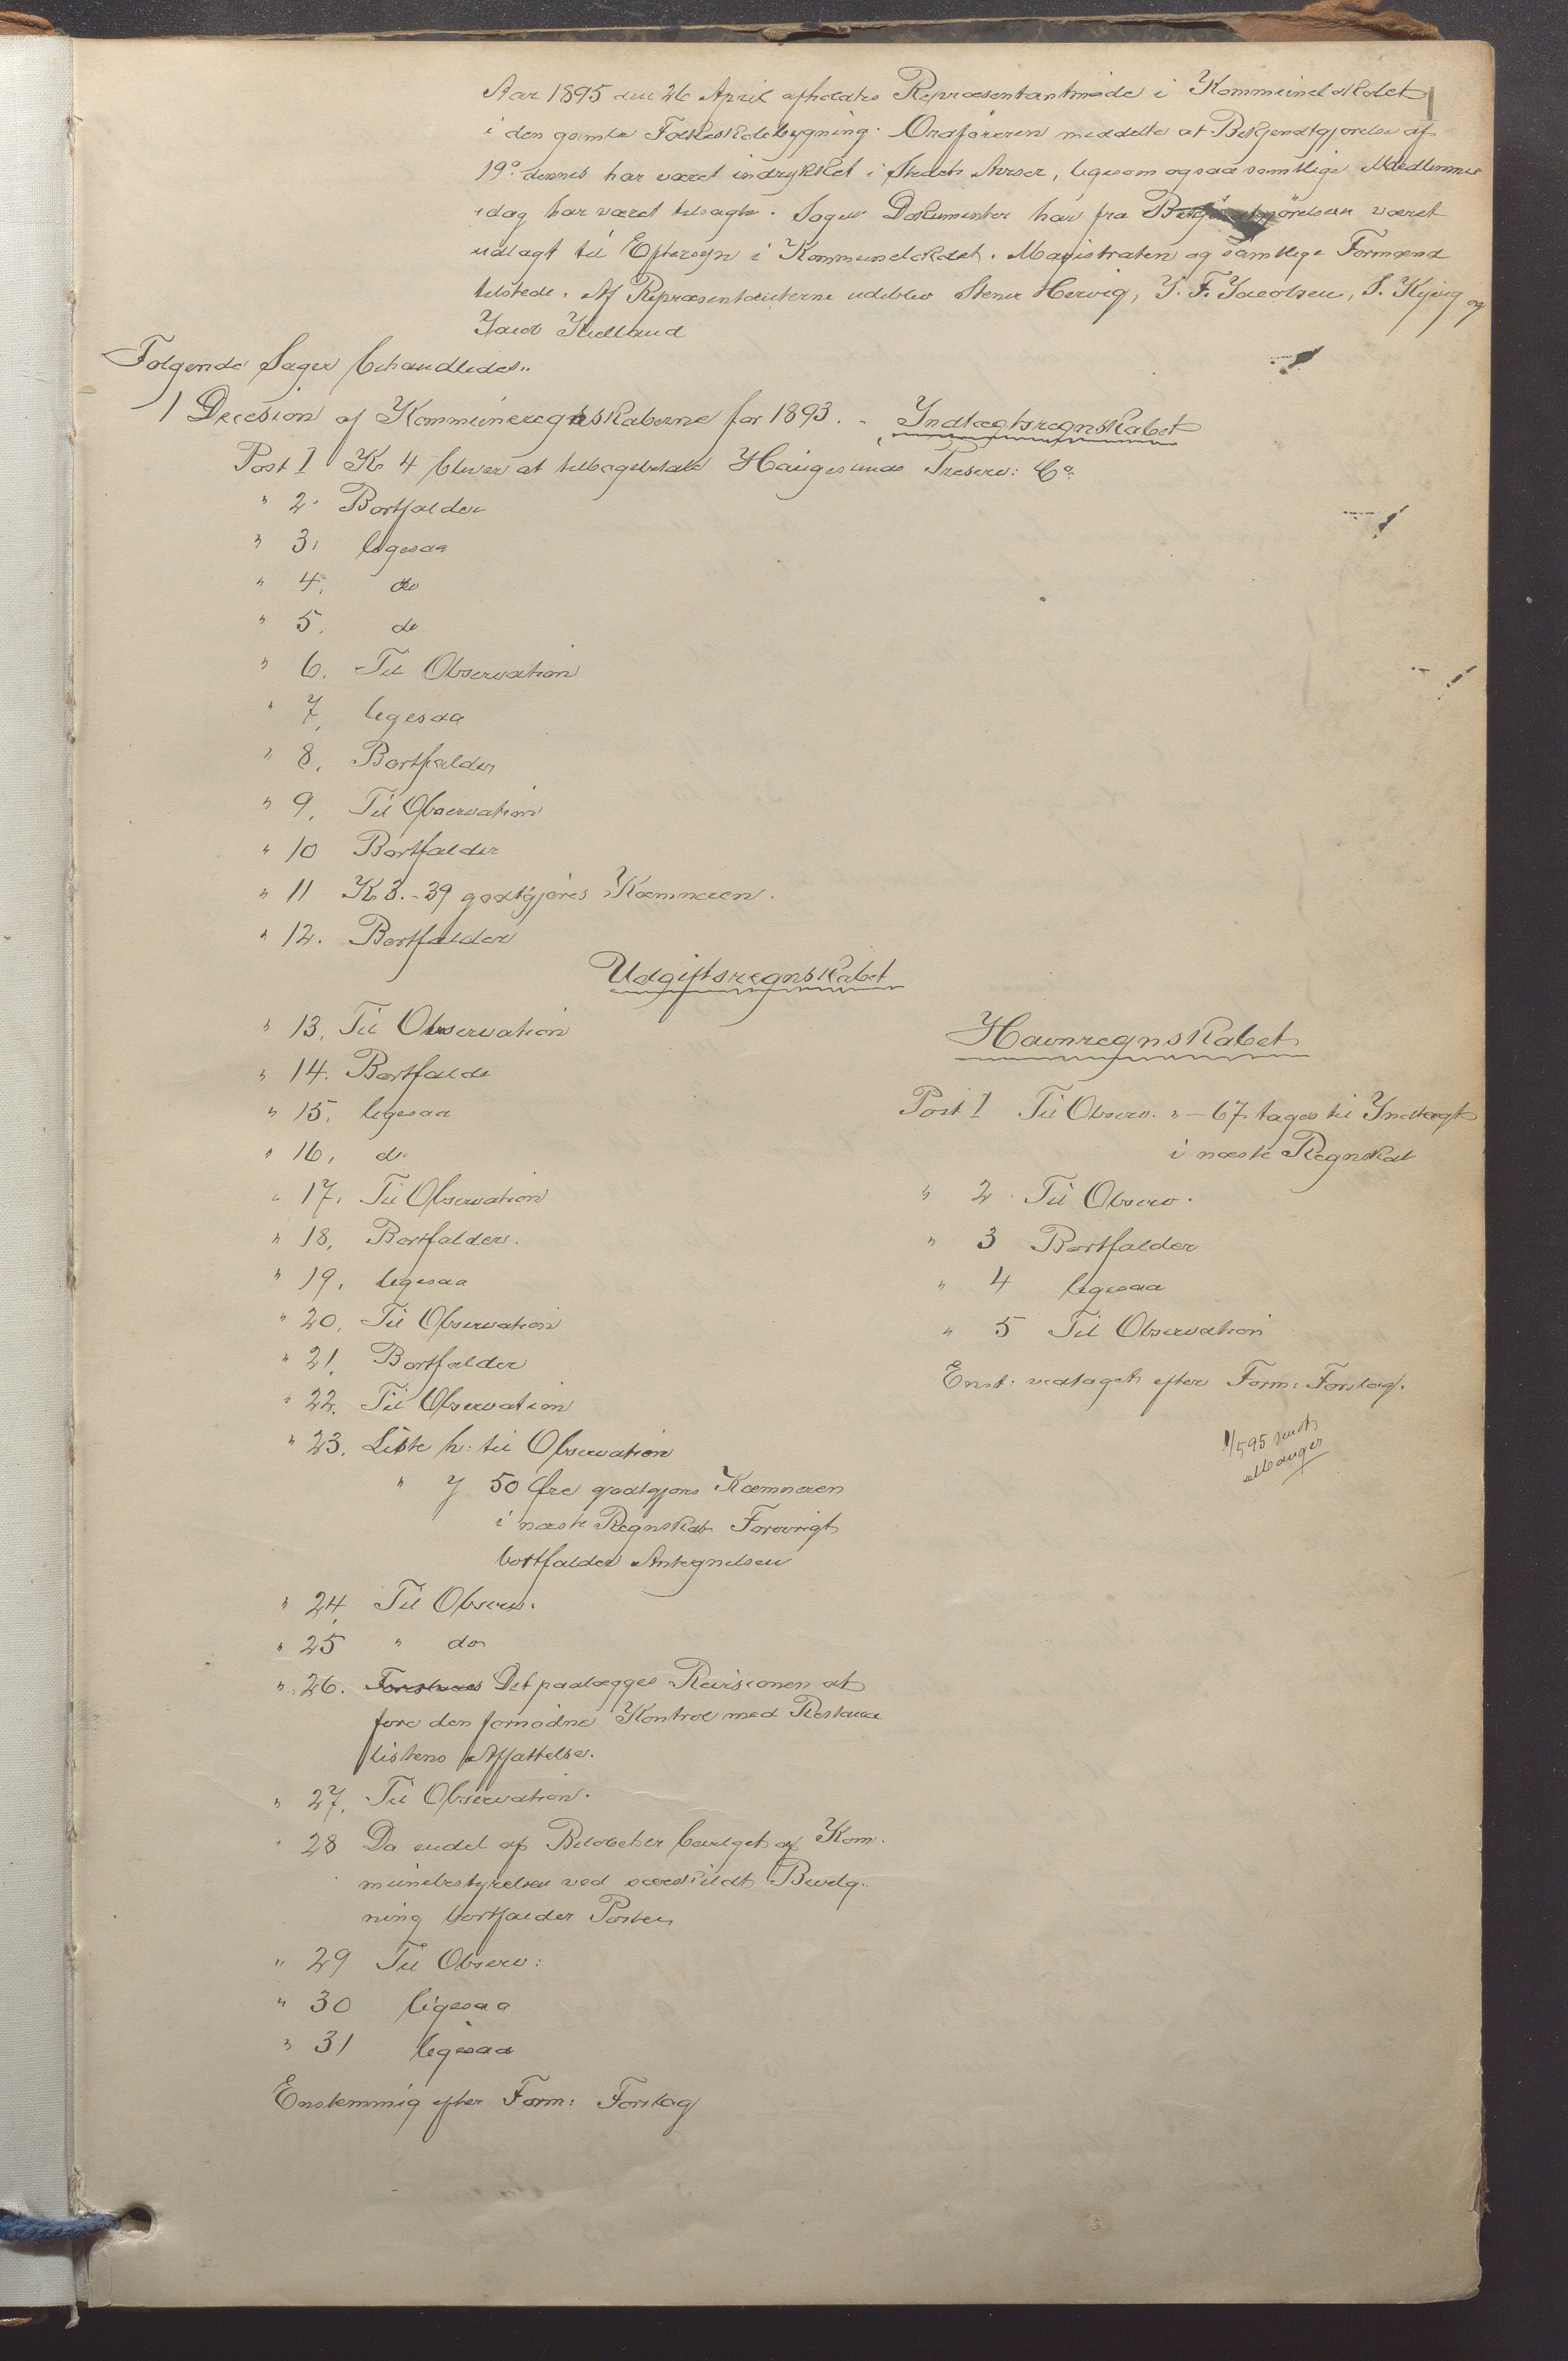 Aar 1895 den 26 April afholdtes Repræsentantmøde i Kommunelokalet
i den gamle Folkeskolebygning. Ordføreren meddelte at Bekjendtgjørelse af
19de dennes har været indrykket i Stedets Aviser, ligesom ogsaa samtlige Medlemmer
idag har været tilsagte. Sagens Dokumenter har fra Bekjendtgjørelsen været
udlagt til Eftersyn i Kommunelokalet. Magistraten og samtlige Formænd
tilstede. Af Repræsentanterne udeblev Stener Hervig, J. F. Jacobsen, S. Kyvig og
Jacob Kielland
Følgende Sager behandledes..
1 Decision af Kommuneregnskaberne for 1893. - Indtægtsregnskabet
Post 1 Kr 4 bliver at tilbagebetale Haugesunds Preserv: Co.
" 2. Bortfalder
" 3. ligesaa
" 4. do
" 5. do
" 6. Til Observation
" 7. ligesaa
" 8. Bortfalder
" 9. Til Observation
" 10 Bortfalder
" 11 Kr 3.-39 godtgjøres Kæmneren.
" 12. Bortfalder
Udgiftsregnskabet
" 13. Til Observation
" 14. Bortfalde
" 15. ligesaa
" 16. do.
" 17. Til Observation
" 18. Bortfalder.
" 19. ligesaa
" 20. Til Observation
" 21. Bortfalder
" 22. Til Observation
" 23. Liste h: til Observation
" y 50 Øre godtgjøres Kæmneren
i næste Regnskab. Forøvrigt
bortfalder Antegnelsen
" 24. Til Observ.
" 25 " do
" 26. Det paalægges Revisionen at
føre den fornødne Kontrol med Restance
listens Affattelse.
" 27. Til Observation.
" 28 Da endel af Beløbet er bevilget af Kom.
munebestyrelsen ved særskildt Bevilg.
ning bortfalder Posten
" 29 Til Observ:
" 30 ligesaa
" 31 ligesaa
Enstemmig efter Form: Forslag
Havnregnskabet
Post 1 Til Observ. " - 67 tages til Indtægt
i næste Regnskab
" 2 Til Observ.
" 3 Bortfalder
" 4 ligesaa
" 5 Til Observation
Enst. vedtaget efter Form: Forslag.
1/5 95